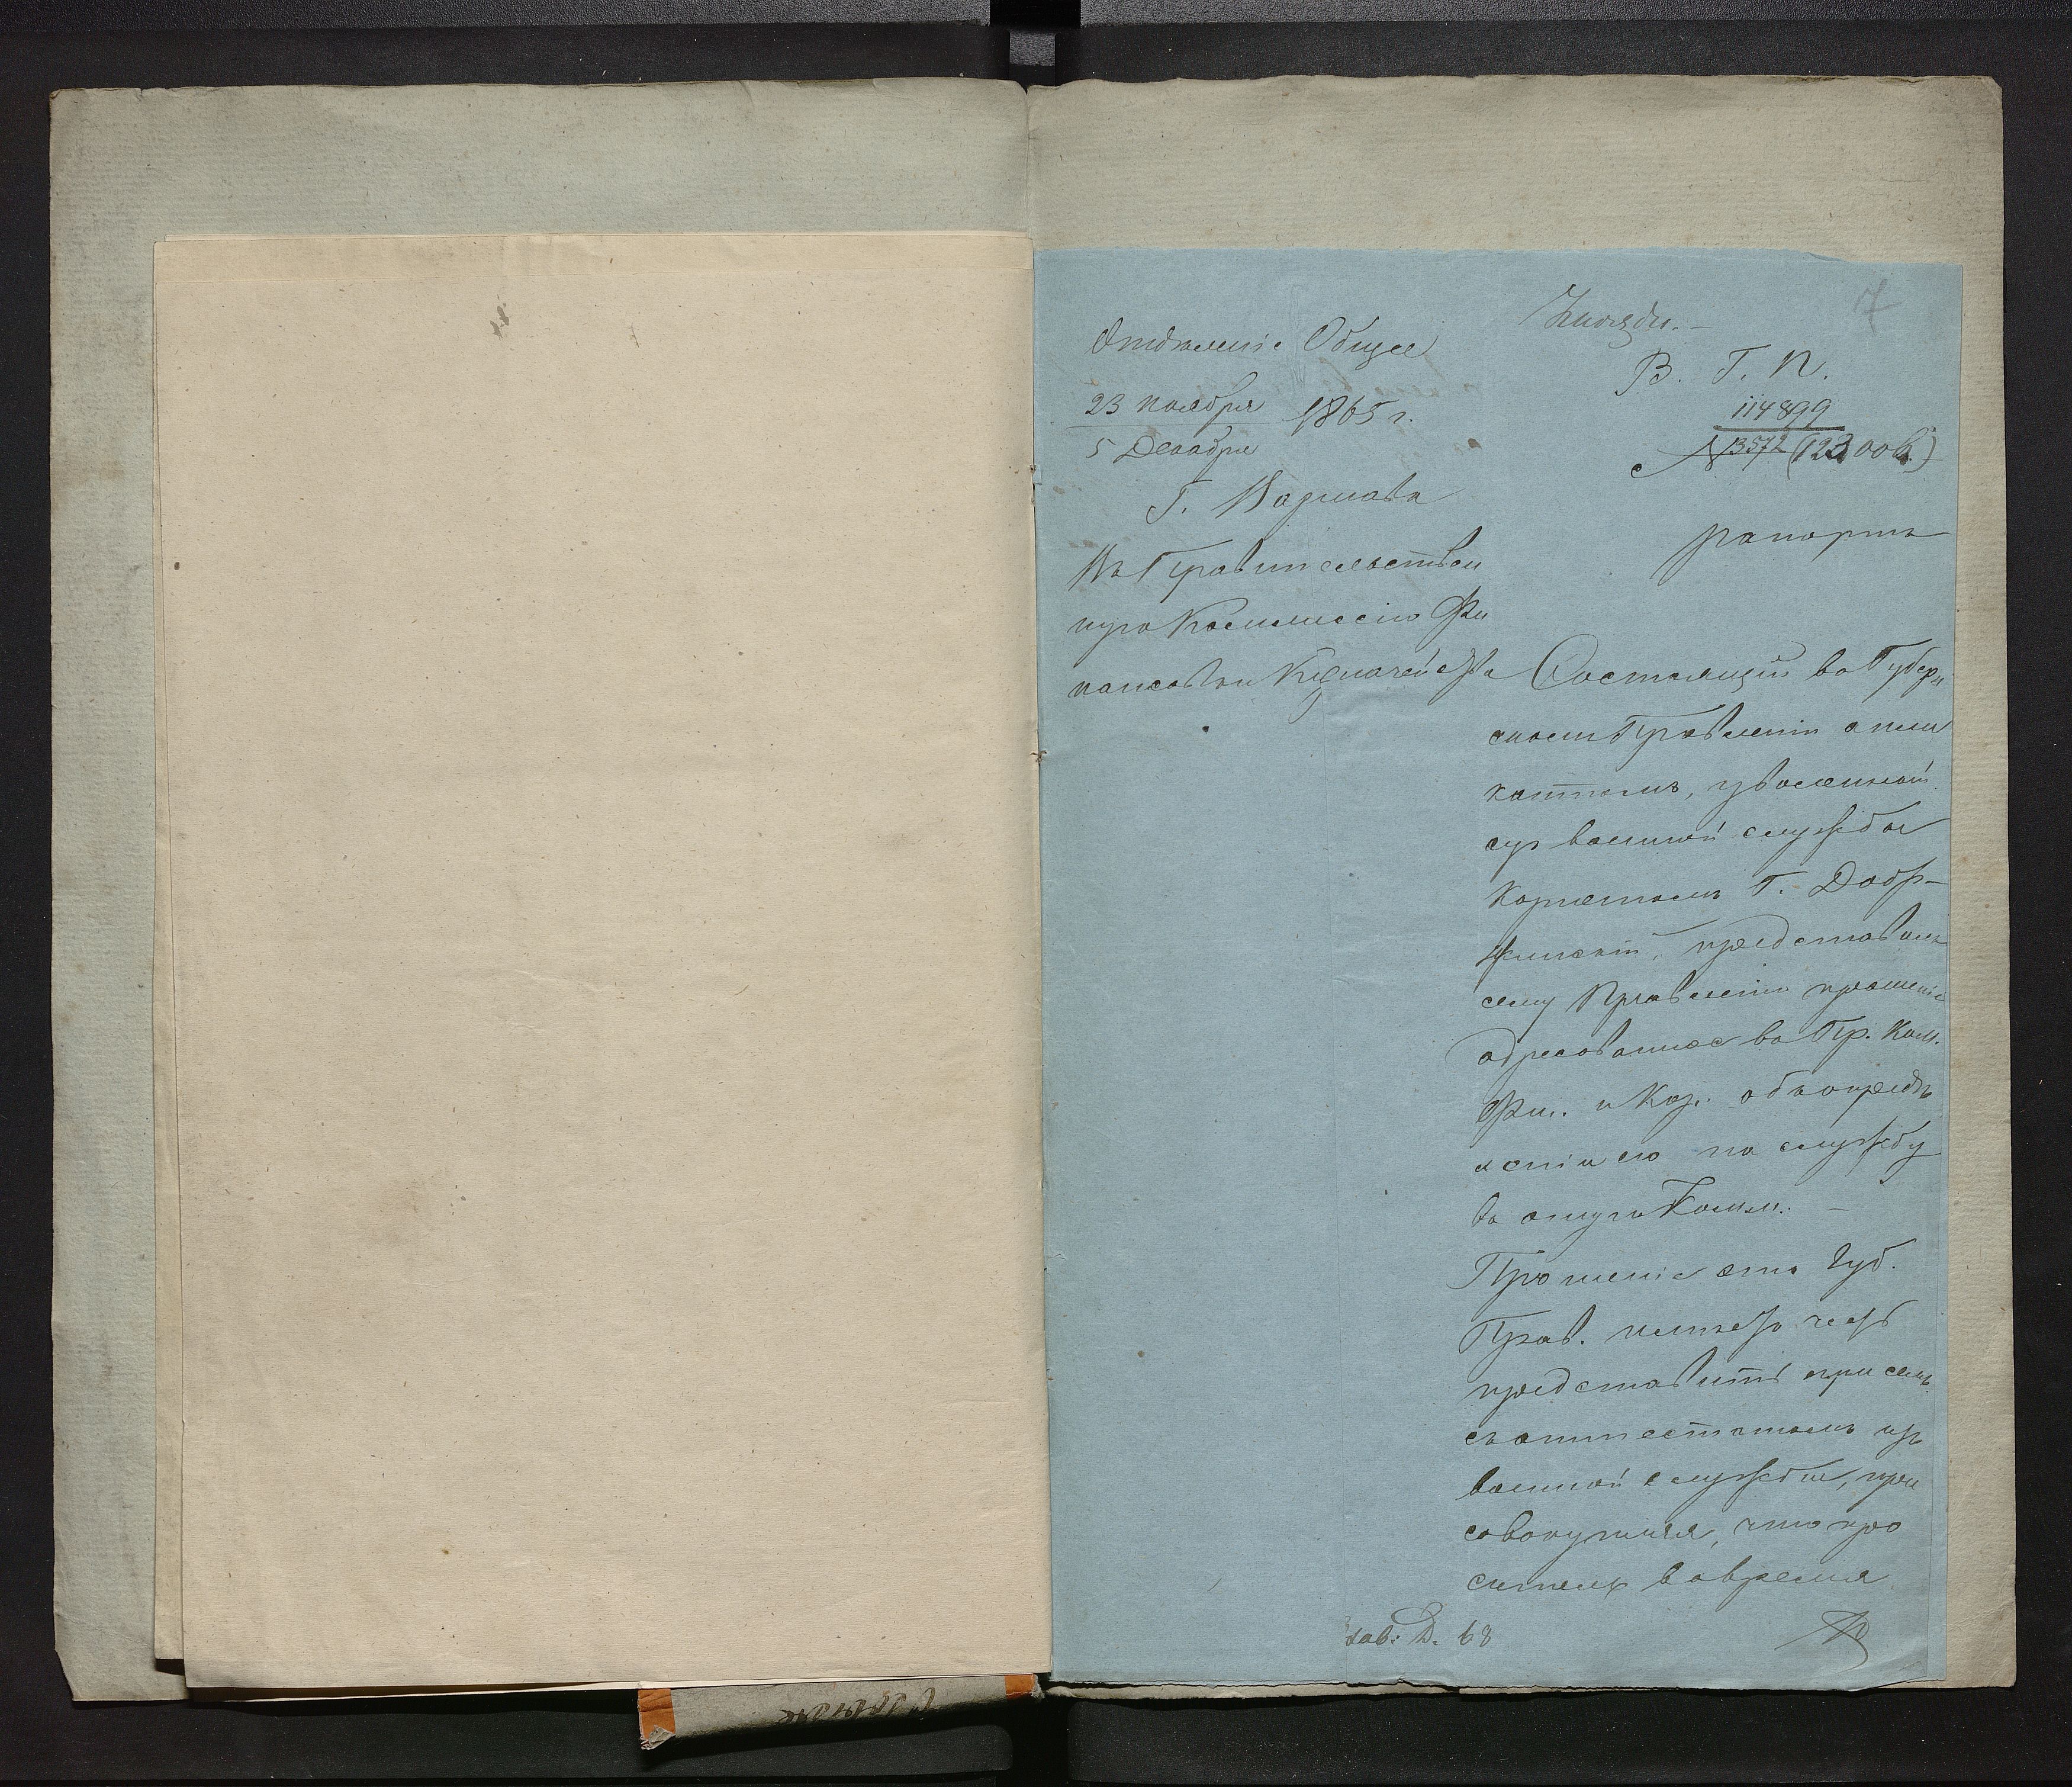 7
Отдѣленіе Общее
23 Ноября 1865 г.
5 Декабря
Г. Варшава
Въ Правительствен
ную Коммиссію Фи
нансовъ и Казначейства
В. Г. П.
114899
№ 13572 (123006)
рапортъ
Состоящій въ Губерн
скомъ Правленіи аппли
кантомъ, уволенный
изъ военной службы
Корнетомъ Г. Добр-
жинскій, представилъ
сему Правленію прошеніе
адресованное въ Пр. Ком.
Фин. и Каз. объ опредѣ
леніи его на службу
въ оную Комм. —
Прошеніе это Губ.
Прав. имѣетъ честь
представить при семъ
съ аттестатомъ изъ
военной службы, при
совокупляя, что про
ситель во время
68